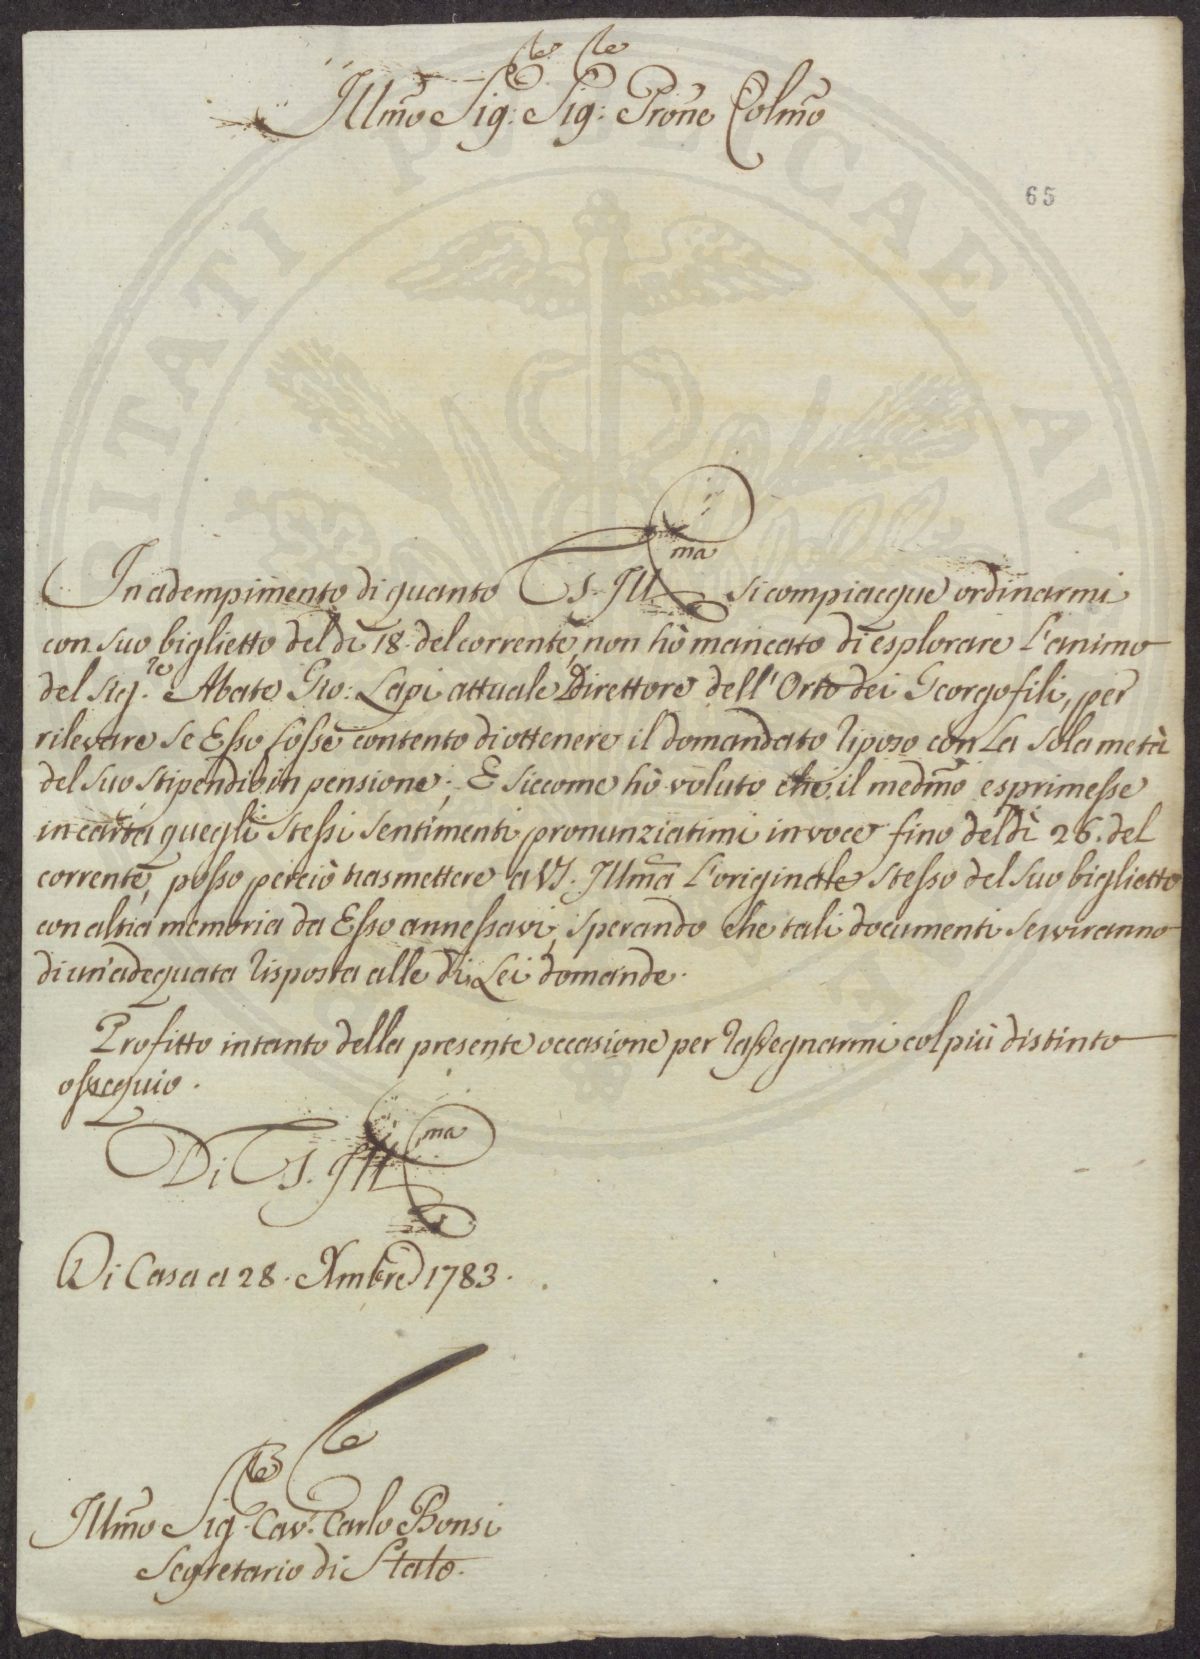 Illmo Sig:re Sig:re Prone Colmo
65
In adempimento di quanto VS. Illma si compiacque ordinarmi
con suo biglietto del dì 18. del corrente, non hò mancato di esplorare l'animo
del Sig.re Abate Gio: Lapi attuale Direttore dell'Orto dei Georgofili, per
rilevare se Esso fosse contento di ottenere il domandato riposo con la sola metà
del suo stipendio in pensione; E siccome hò voluto che il medmo esprimesse
in carta quegli stessi sentimenti pronunziatimi in voce fino del dì 26. del
corrente, posso perciò trasmettere a VS. Illma l'originale stesso del suo biglietto
con altra memoria da Esso annessavi, sperando che tali documenti serviranno
di un'adequata risposta alle di Lei domande.
Profitto intanto della presente occasione per rassegnarmi col più distinto
ossequio.
Di VS. Illma
Di Casa a 28. Xmbre 1783.
Illmo Sig.re Cav.re Carlo Bonsi
Segretario di Stato.
PUBLICAE